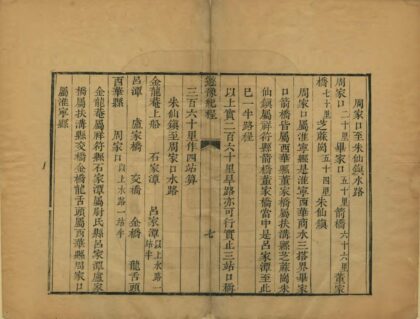 周家口至朱仙鎮水路
周家口二十里畢家口五十里箭橋六十六里董家
橋七十里芝蔴崗五十四里朱仙鎮
周家口屬淮寧縣是淮寧西華商水三搭界畢家
口箭橋皆屬西華縣董家橋屬扶溝縣芝蔴崗朱
仙鎮屬祥符縣箭橋董家橋當中是呂家潭至此
已一半路程
以上實二百六十里旱路亦可行實止三站口稱
三百六十里作四站算
朱仙鎮至周家口水路
金龍菴上船 石家潭 呂家潭以上水路一站半
呂潭 盧家橋 交橋 金橋 龍舌頭
西華縣 周家口以上水路一站半
金龍菴屬祥符縣石家潭屬尉氏縣呂家潭盧家
橋屬扶溝縣交橋金橋龍舌頭屬西華縣周家口
屬淮寧縣
豫紀程
七